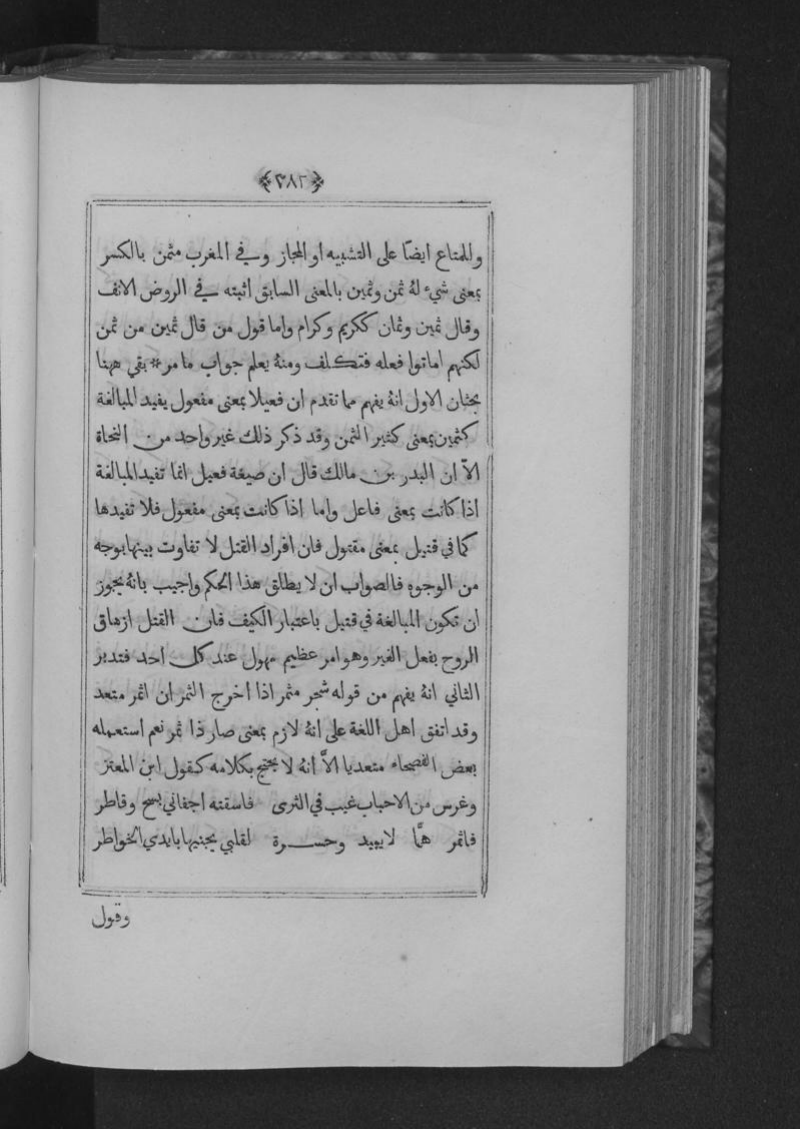 ﴿٣٨٢﴾
وللمتاع ايضًا على التشبيه او المجاز وفي المغرب مثمن بالكسر
بمعنى شيء لهُ ثمن وثمين بالمعنى السابق اثبته في الروض الانف
وقال ثمين وثمان ككريم وكرام واما قول من قال ثمين من ثمن
لكنهم اماتوا فعله فتكلف ومنهُ يعلم جواب ما مر * بقي ههنا
بحثان الاول انهُ يفهم مما تقدم ان فعيلا بمعنى مفعول يفيد المبالغة
كثمين بمعنى كثير الثمن وقد ذكر ذلك غير واحد من النحاة
الاّ ان البدر بن مالك قال ان صيغة فعيل انما تفيد المبالغة
اذا كانت بمعنى فاعل واما اذا كانت بمعنى مفعول فلا تفيدها
كما في قتيل بمعنى مقتول فان افراد القتل لا تفاوت بينها بوجه
من الوجوه فالصواب ان لا يطلق هذا الحكم واجيب بانهُ يجوز
ان تكون المبالغة في قتيل باعتبار الكيف فان القتل ازهاق
الروح بفعل الغير وهو امر عظيم مهول عند كل احد فتدبر
الثاني انهُ يفهم من قوله شجر مثمر اذا اخرج الثمر ان اثمر متعد
وقد اتفق اهل اللغة على انهُ لازم بمعنى صار ذا ثمر نعم استعمله
بعض الفصحاء متعديا الاَّ انهُ لا يحتج بكلامه كقول ابن المعتز
وغرس من الاحباب غيب في الثرى فاسقته اجفاني بسح وقاطر
فاثمر همًّا لا يبيد وحسرة لقلبي يجنيها بايدي الخواطر
وقول